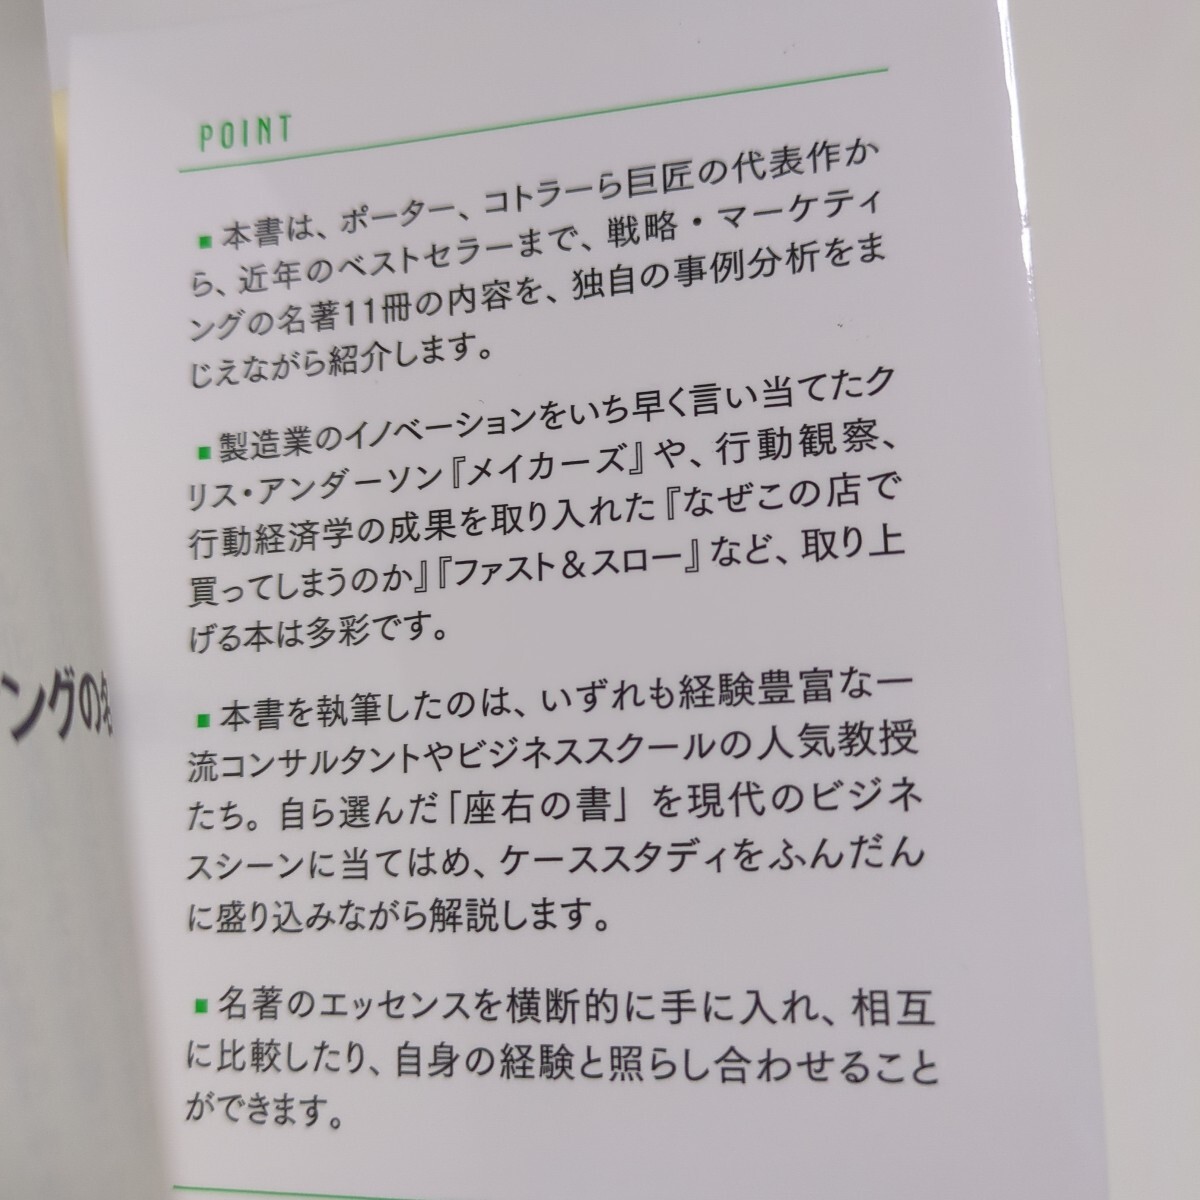 POINT
■本書は、ポーター、コトラーら巨匠の代表作か
ら、近年のベストセラーまで、戦略・マーケティ
ングの名著11冊の内容を、独自の事例分析をま
じえながら紹介します。
■製造業のイノベーションをいち早く言い当てたク
リス・アンダーソン『メイカーズ』や、行動観察、
行動経済学の成果を取り入れた『なぜこの店で
買ってしまうのか』『ファスト&スロー』など、取り上
げる本は多彩です。
■本書を執筆したのは、いずれも経験豊富な一
流コンサルタントやビジネススクールの人気教授
たち。自ら選んだ「座右の書」を現代のビジネ
スシーンに当てはめ、ケーススタディをふんだん
に盛り込みながら解説します。
■名著のエッセンスを横断的に手に入れ、相互
に比較したり、自身の経験と照らし合わせること
ができます。
ングの名